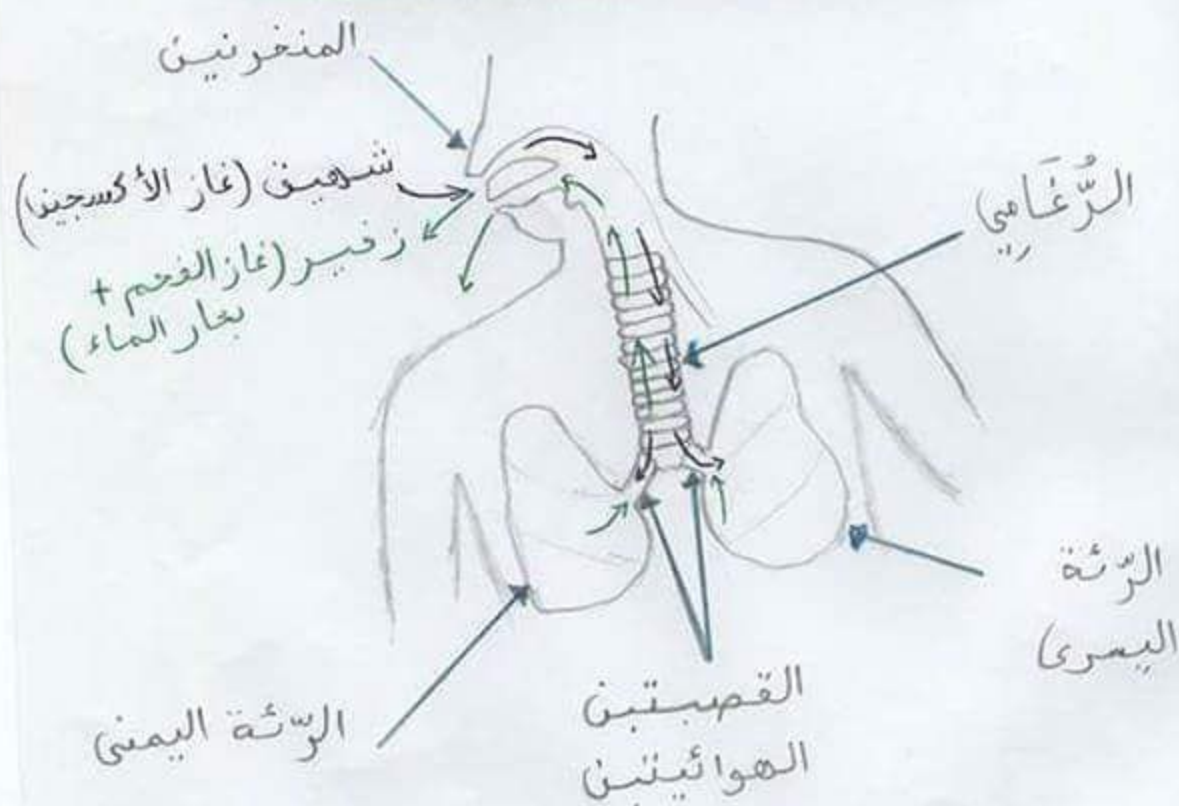 المنخرنين
شهيق (غاز الأكسجين)
زفير (غاز الفحم +
بخار الماء)
الرُّغَامِي
الرّئة
اليسرى
القصبتين
الهوائيتين
الرّئة اليمنى